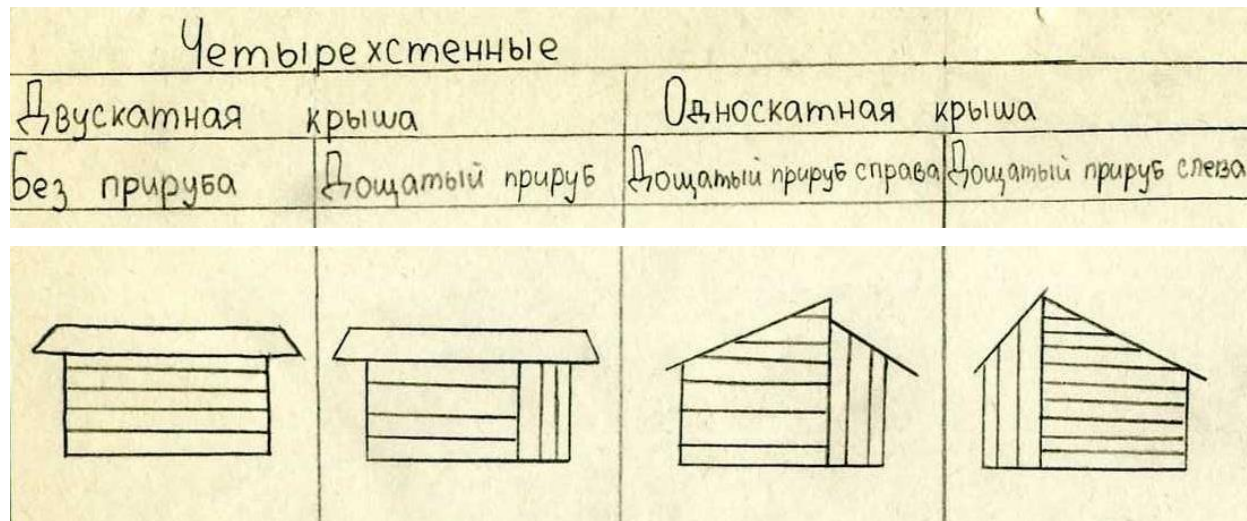 Четырехстенные
Двускатная крыша Односкатная крыша
Без прируба Дощатый прируб Дощатый прируб справа Дощатый прируб слева